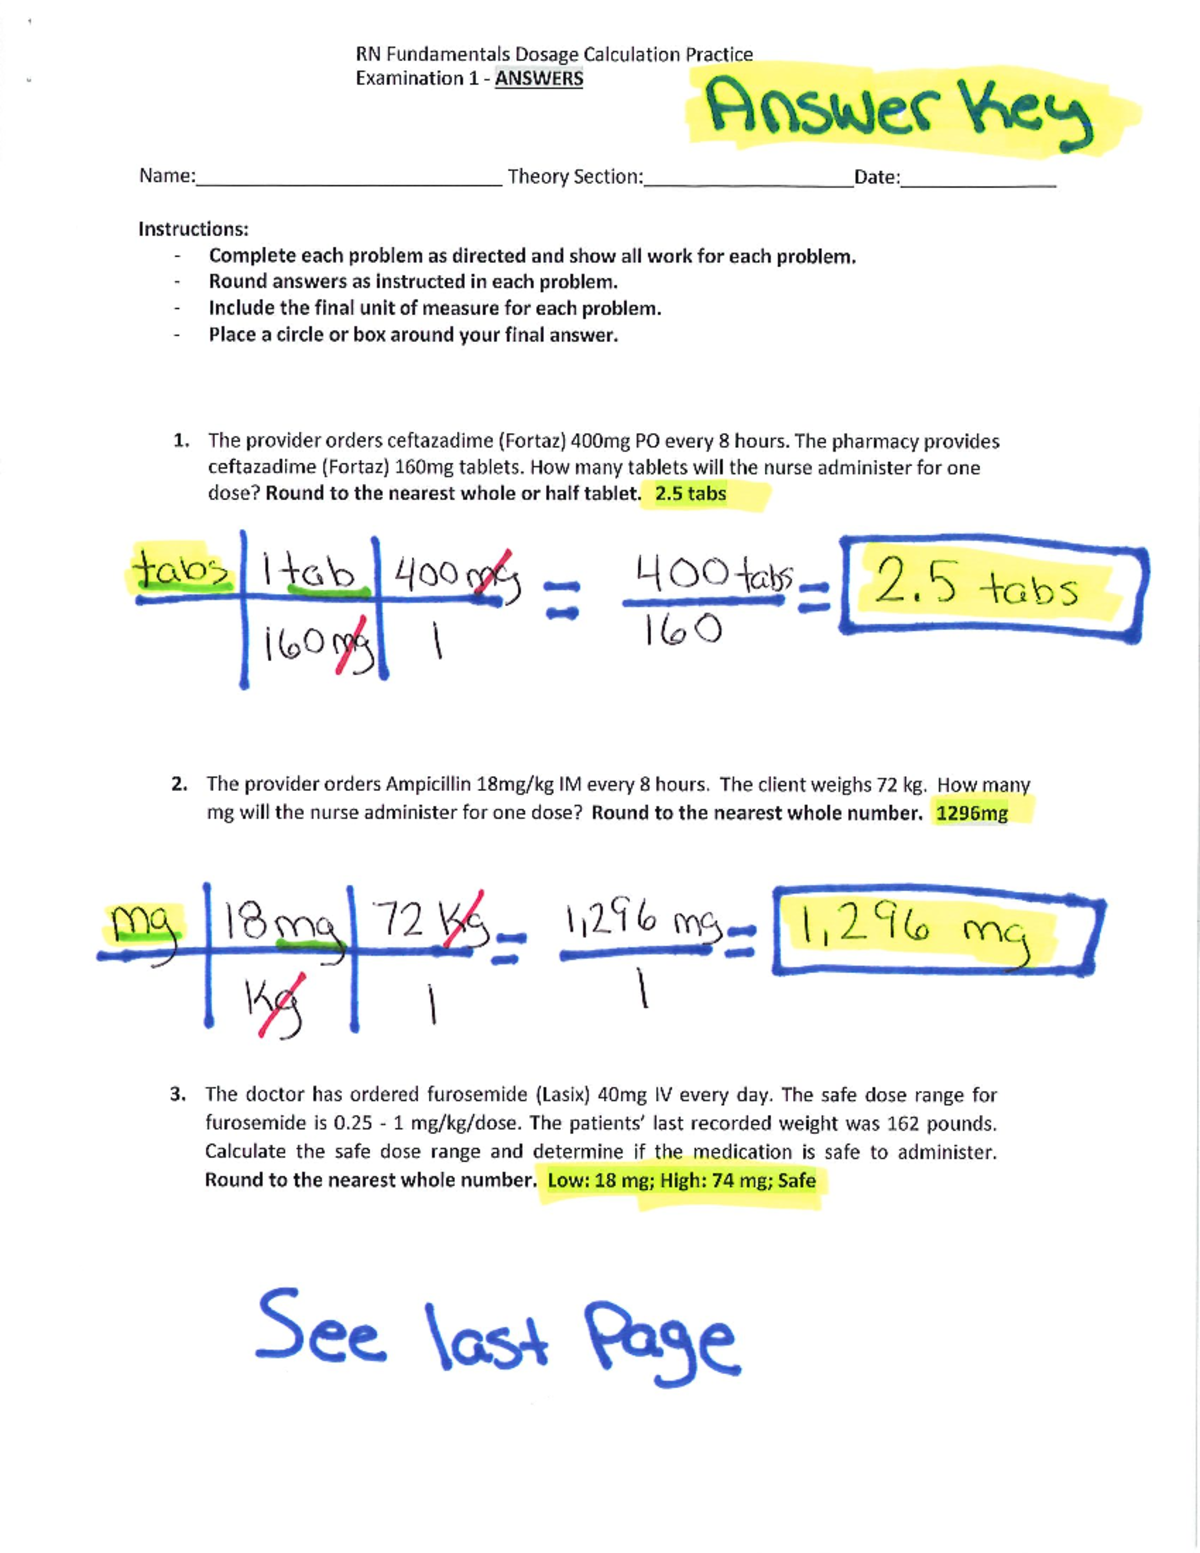 RN Fundamentals Dosage Calculation Practice
Examination 1 - ANSWERS
Answer Key
Name: Theory Section: Date:
Instructions:
- Complete each problem as directed and show all work for each problem.
- Round answers as instructed in each problem.
- Include the final unit of measure for each problem.
- Place a circle or box around your final answer.
1. The provider orders ceftazadime (Fortaz) 400mg PO every 8 hours. The pharmacy provides
ceftazadime (Fortaz) 160mg tablets. How many tablets will the nurse administer for one
dose? Round to the nearest whole or half tablet. 2.5 tabs
tabs 1 tab 400 mg = 400 tabs = 2.5 tabs
160 mg 1 160
2. The provider orders Ampicillin 18mg/kg IM every 8 hours. The client weighs 72 kg. How many
mg will the nurse administer for one dose? Round to the nearest whole number. 1296mg
mg 18 mg 72 Kg = 1,296 mg = 1,296 mg
Kg 1 1
3. The doctor has ordered furosemide (Lasix) 40mg IV every day. The safe dose range for
furosemide is 0.25 - 1 mg/kg/dose. The patients' last recorded weight was 162 pounds.
Calculate the safe dose range and determine if the medication is safe to administer.
Round to the nearest whole number. Low: 18 mg; High: 74 mg; Safe
See last Page